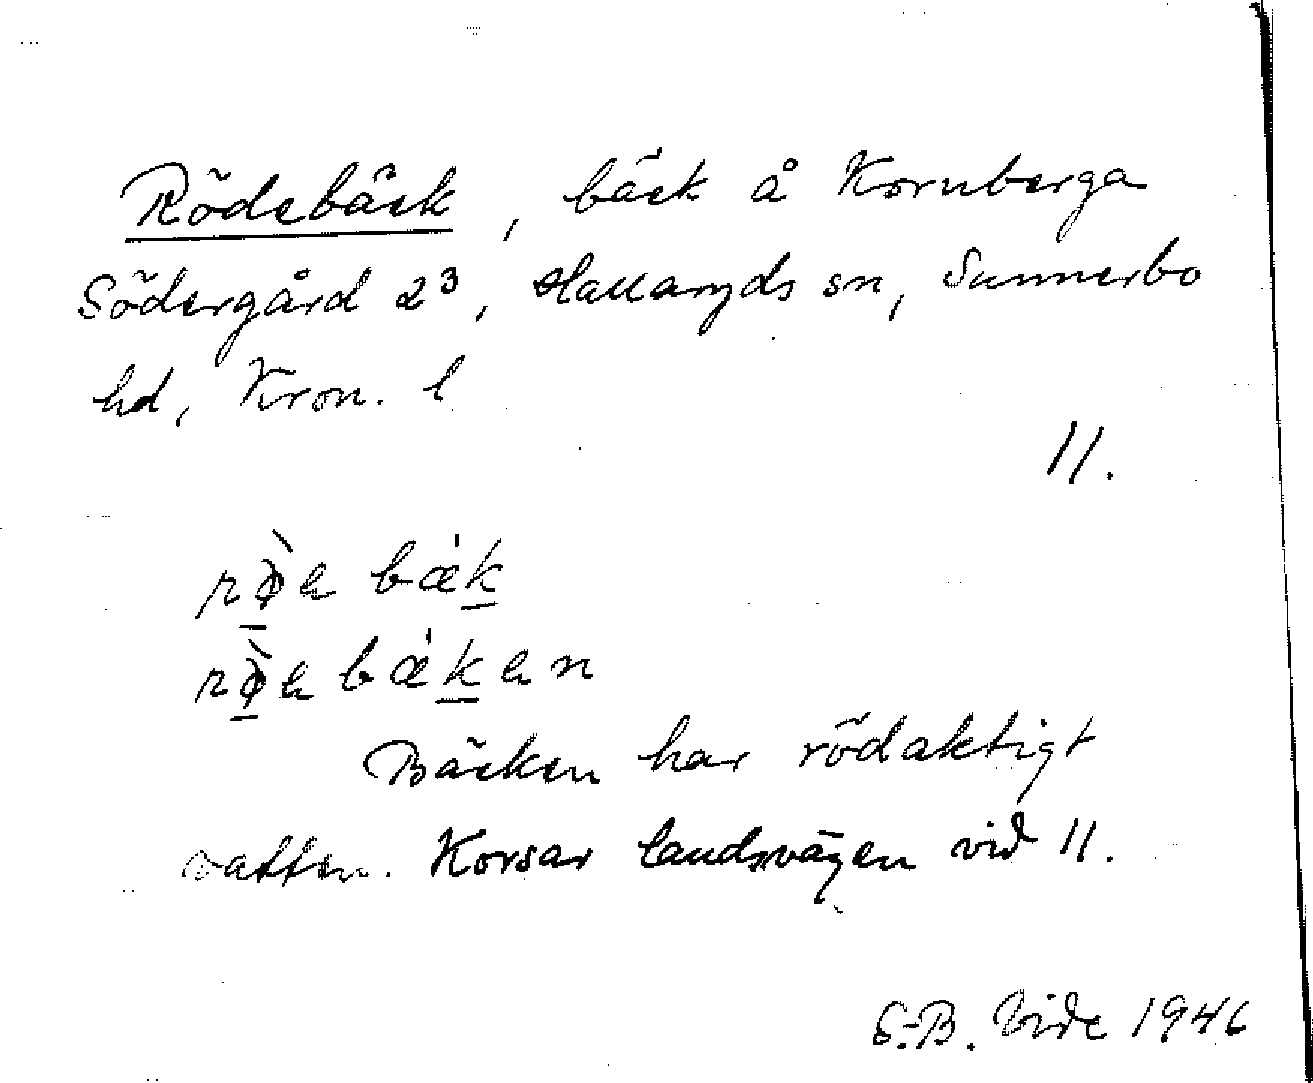 Rödebäck, bäck å Kornberga
Södergård 2³, Hallaryds sn, Sunnerbo
hd, Kron. l
11.
rø̀e bæ̇k
rø̀e bæ̇ken
Bäcken har rödaktigt
vatten. Korsar landsvägen vid 11.
S.-B. Vide 1946